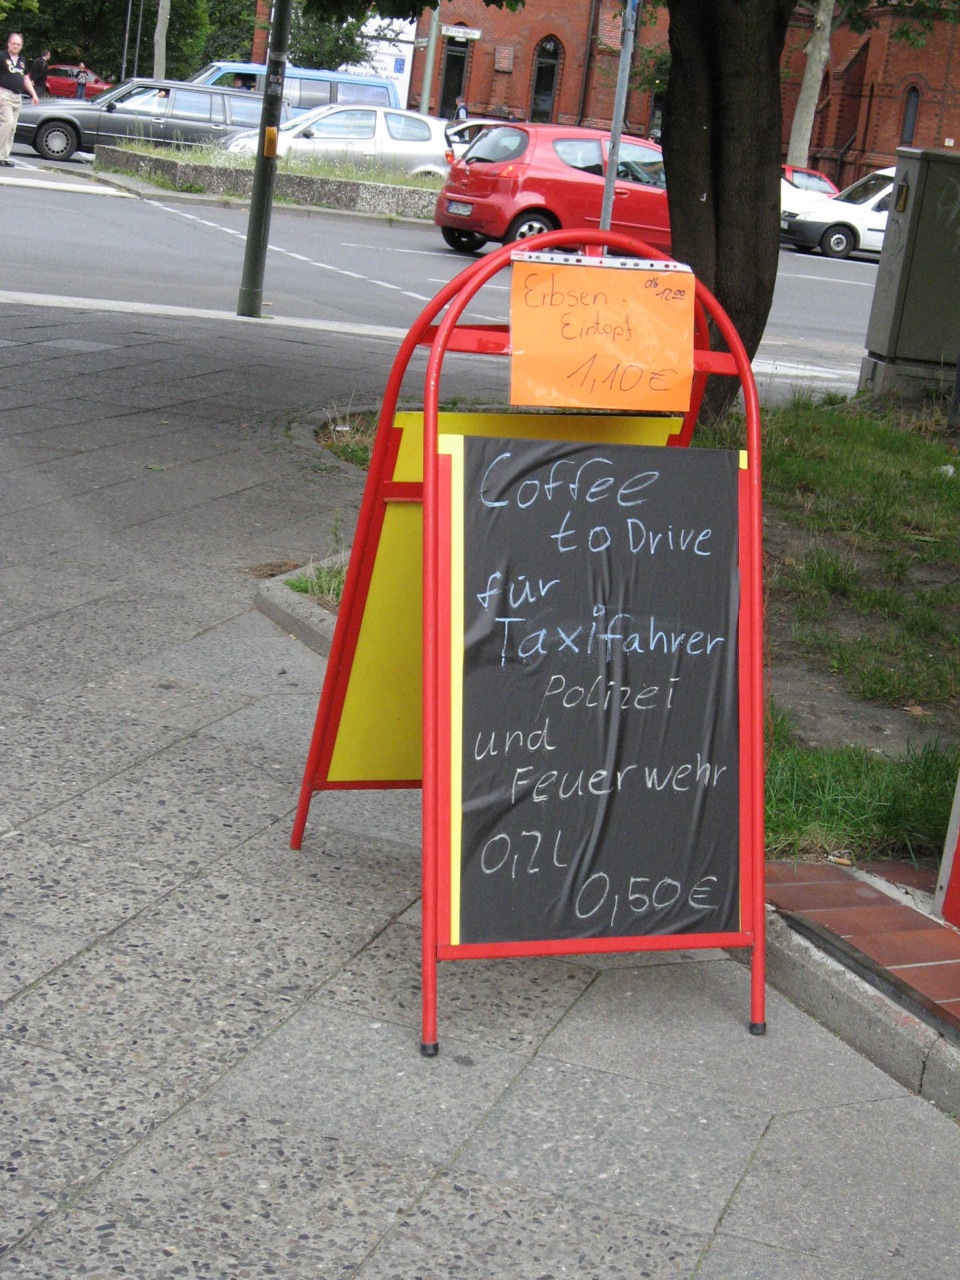 Erbsen -
ab 12.00
Eintopf
1,10 €
Coffee
to Drive
für
Taxifahrer
Polizei
und
Feuerwehr
0,2L
0,50 €